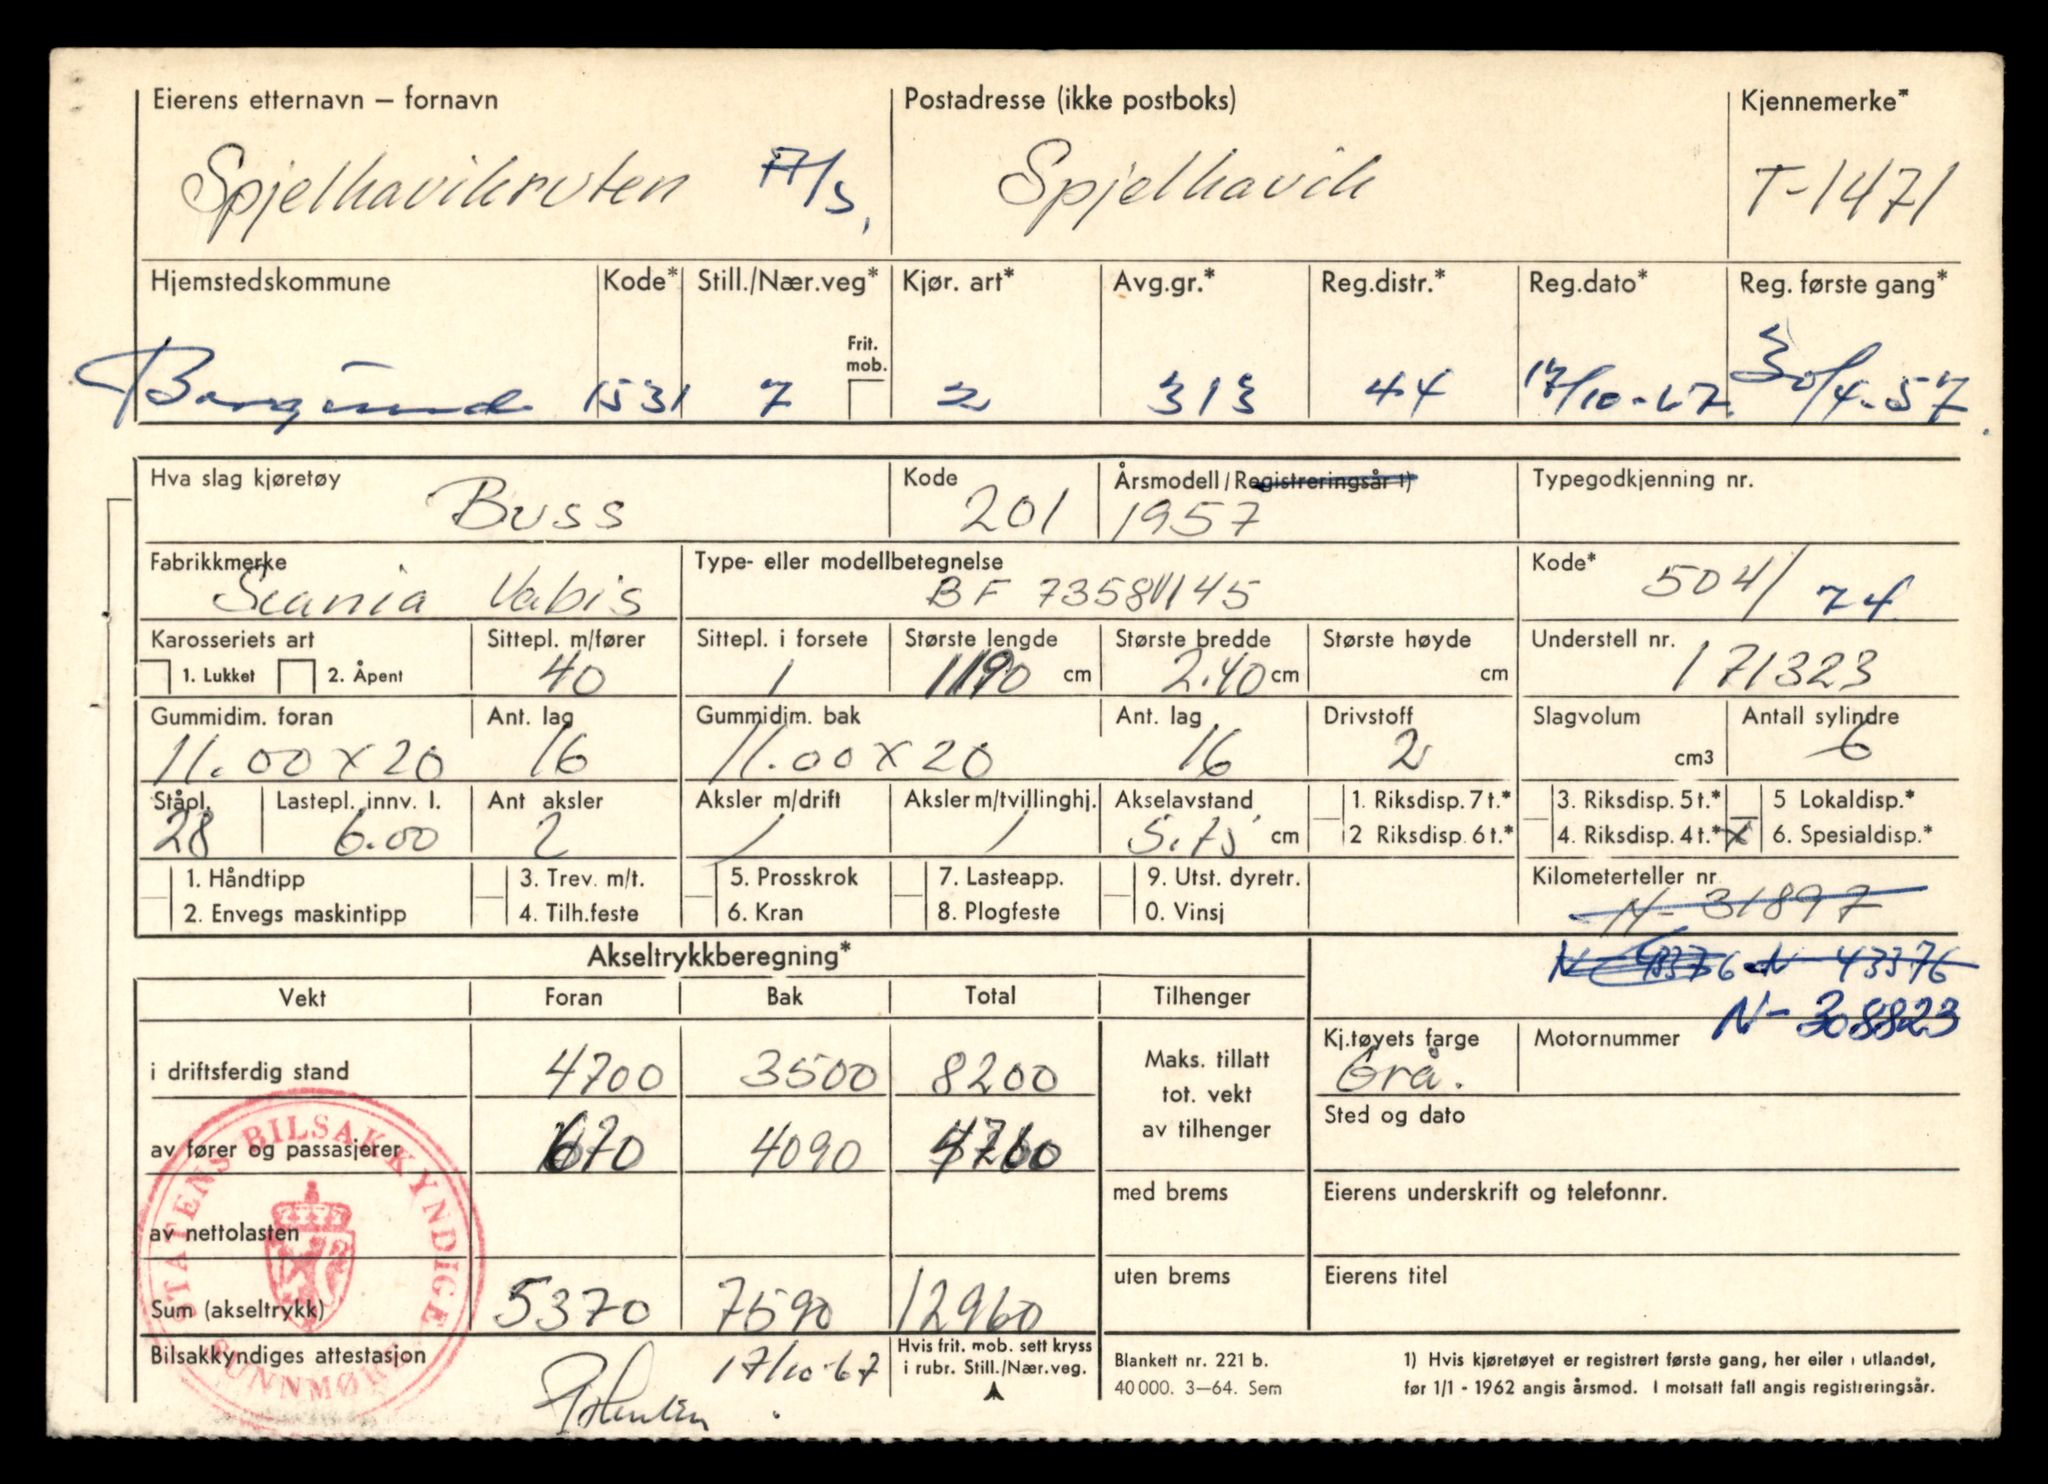 Eierens etternavn – fornavn Postadresse (ikke postboks) Kjennemerke*
Spjelkavikruten A/S, Spjelkavik T-1471
Hjemstedskommune Kode* Still./Nær.veg* Kjør. art* Avg.gr.* Reg.distr.* Reg.dato* Reg. første gang*
Frit. mob.
Borgund 1531 7 2 313 44 17/10-67 30/4-57
Hva slag kjøretøy Kode Årsmodell/Registreringsår 1) Typegodkjenning nr.
Buss 201 1957
Fabrikkmerke Type- eller modellbetegnelse Kode*
Scania Vabis BF 7358 1145 504/74
Karosseriets art Sittepl. m/fører Sittepl. i forsete Største lengde Største bredde Største høyde Understell nr.
1. Lukket 2. Åpent 40 1 1190 cm 2.40 cm cm 171323
Gummidim. foran Ant. lag Gummidim. bak Ant. lag Drivstoff Slagvolum Antall sylindre
11.00 x 20 16 11.00 x 20 16 2 cm3 6
Ståpl. Lastepl. innv. l. Ant aksler Aksler m/drift Aksler m/tvillinghj. Akselavstand 1. Riksdisp. 7 t.* 3. Riksdisp. 5 t.* 5 Lokaldisp.*
28 6.00 2 1 1 5.75 cm 2 Riksdisp. 6 t.* 4. Riksdisp. 4 t.* x 6. Spesialdisp.*
1. Håndtipp 3. Trev. m/t. 5. Prosskrok 7. Lasteapp. 9. Utst. dyretr. Kilometerteller nr.
2. Envegs maskintipp 4. Tilh.feste 6. Kran 8. Plogfeste 0. Vinsj N- 31897
Akseltrykkberegning* N 43376 N 43376
Vekt Foran Bak Total Tilhenger N- 308823
Kj.tøyets farge Motornummer
i driftsferdig stand 4700 3500 8200 Maks. tillatt Grå.
tot. vekt
Sted og dato
av fører og passasjerer 670 4090 4760 av tilhenger
med brems Eierens underskrift og telefonnr.
av nettolasten
uten brems Eierens titel
Sum (akseltrykk) 5370 7590 12960
Bilsakkyndiges attestasjon 17/10-67 Hvis frit. mob. sett kryss i rubr. Still./Nær.veg.
Blankett nr. 221 b. 1) Hvis kjøretøyet er registrert første gang, her eller i utlandet,
40 000. 3–64. Sem før 1/1 - 1962 angis årsmod. I motsatt fall angis registreringsår.
STATENS BILSAKKYNDIGE SUNNMØRE